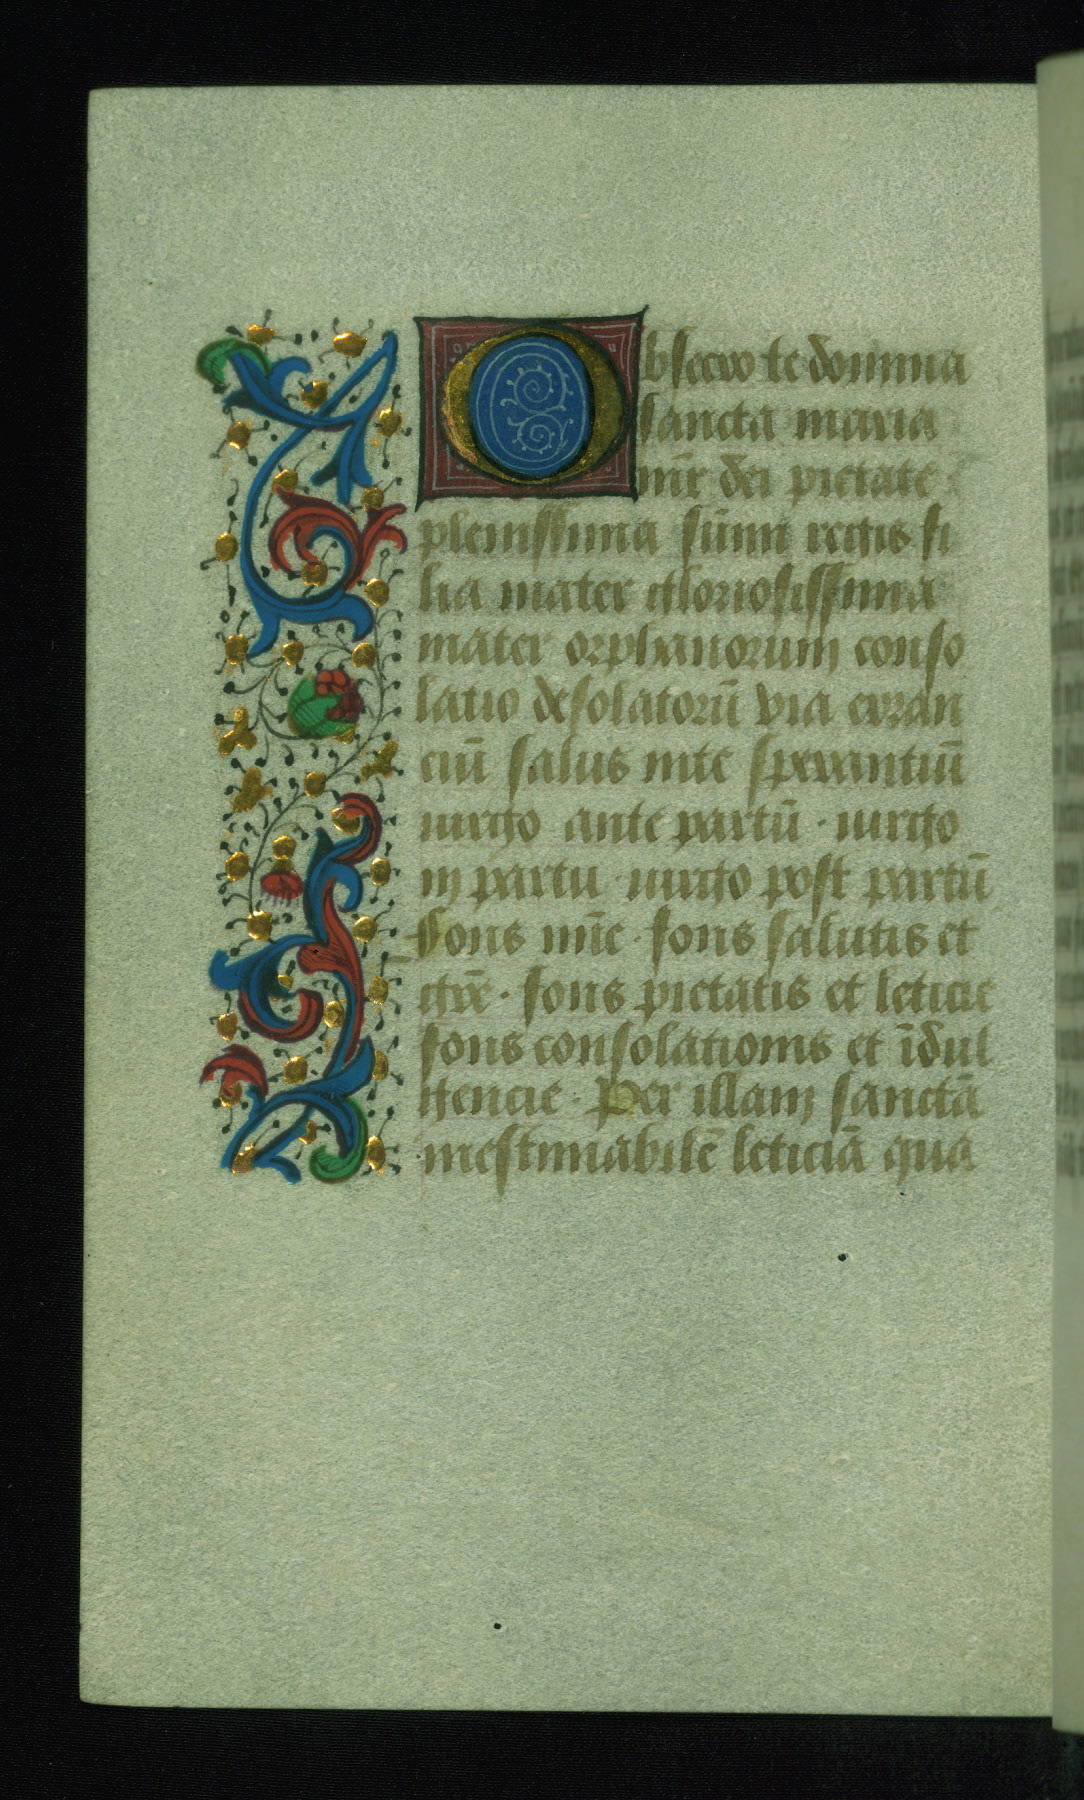 Obsecro te domina
sancta maria
mr̄ dei pietate
plenissima sūmi regis fi
lia mater gloriosissima
mater orphanorum conso
latio desolatorū via erran
ciū salus in te sperantiū
uirgo ante partū · uirgo
in partu · uirgo post partū
Fons mīe · fons salutis et
grē · fons pietatis et leticie
fons consolationis et īdul
gencie · Per illam sanctā
inestimabilē leticiā qua